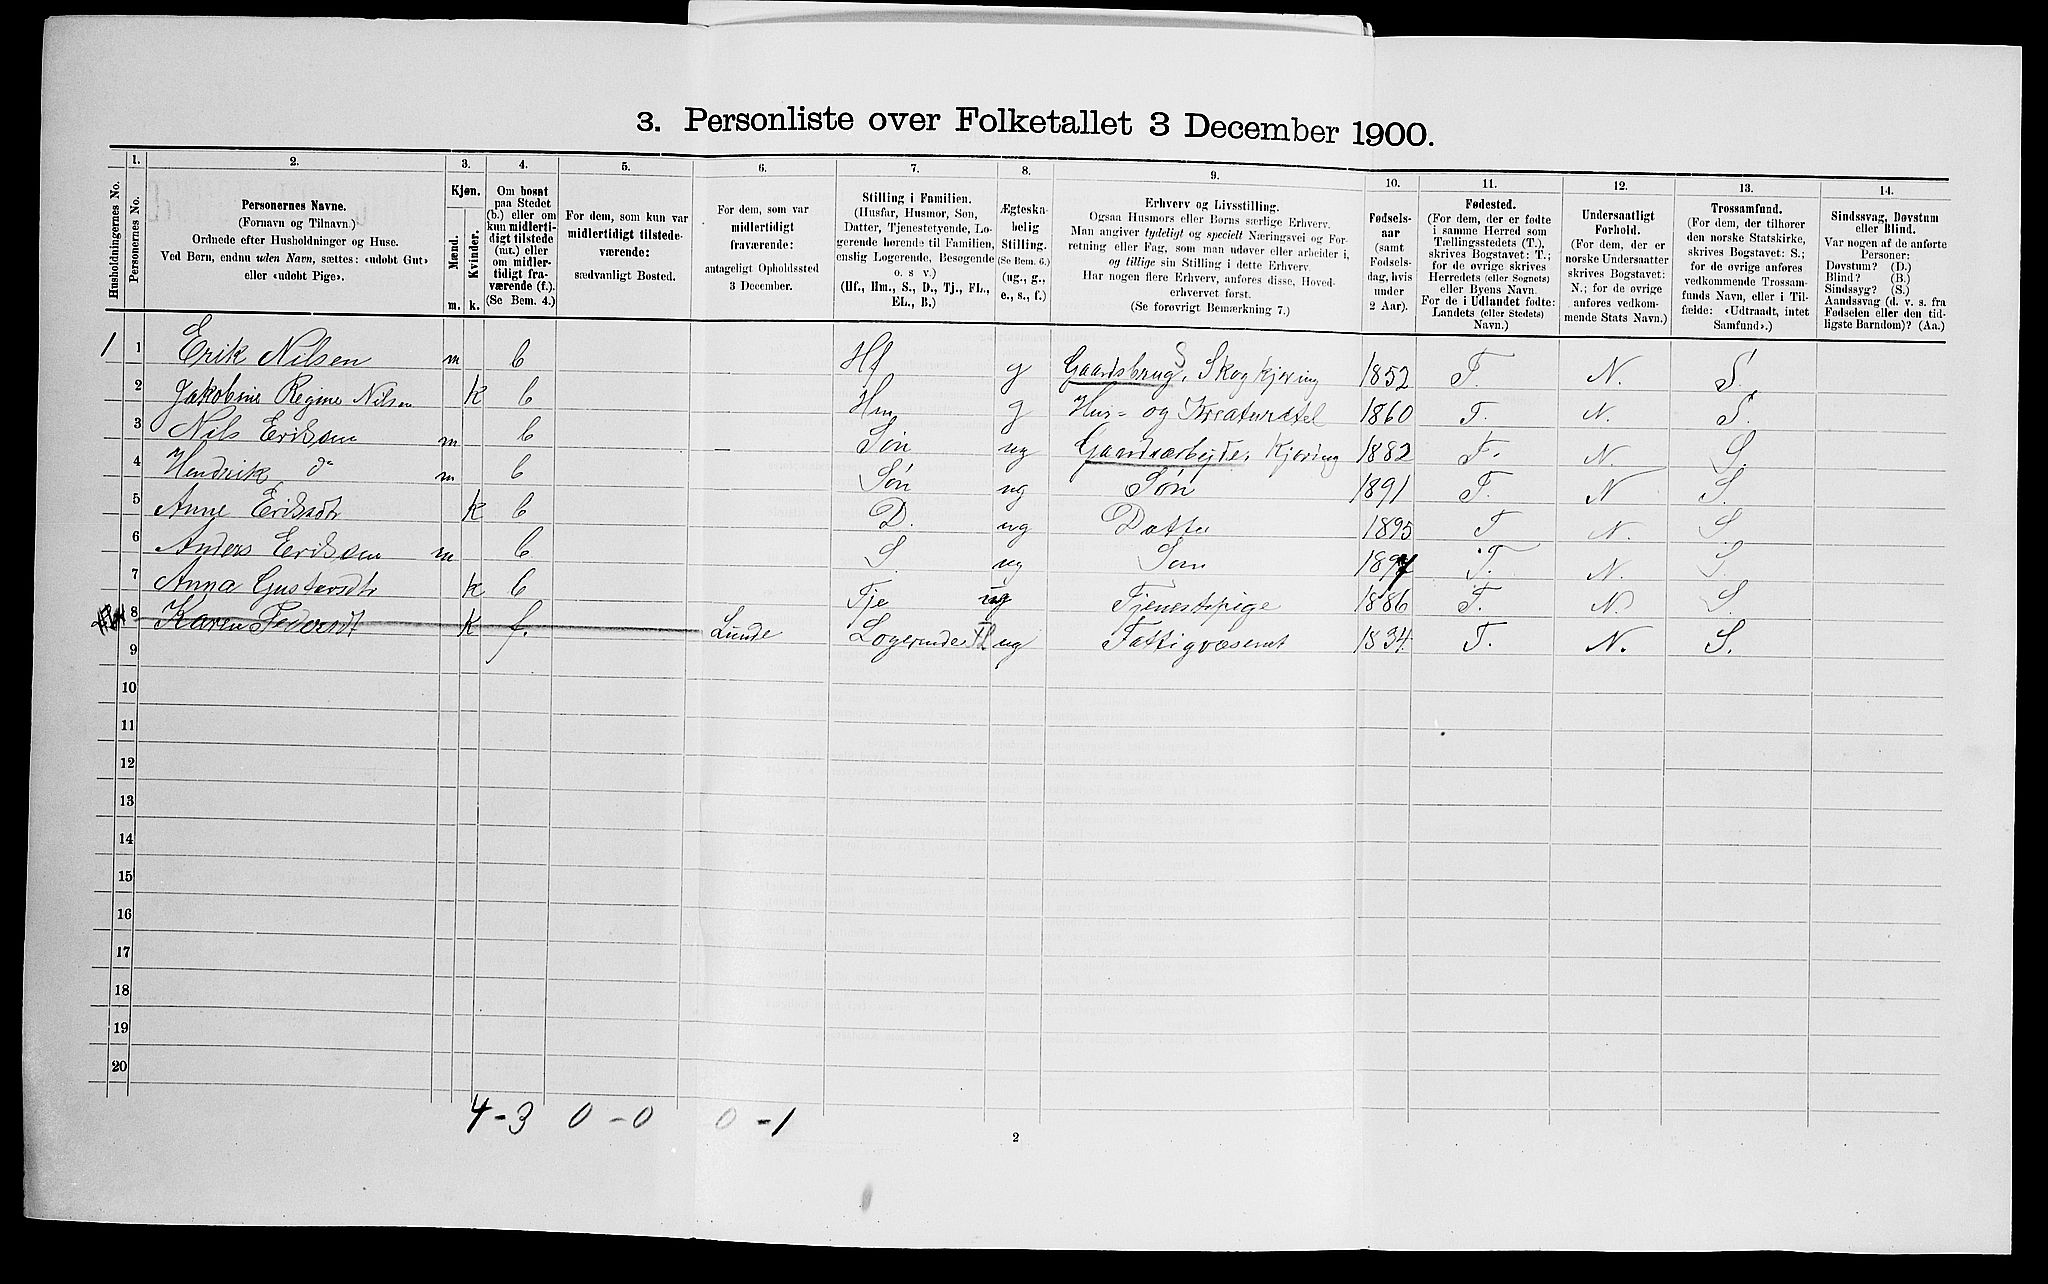 3. Personliste over Folketallet 3 December 1900.
1. 2. 3. 4. 5. 6. 7. 8. 9. 10. 11. 12. 13. 14.
Husholdningernes No.
Personernes No.
Personernes Navne.
(Fornavn og Tilnavn.)
Ordnede efter Husholdninger og Huse.
Ved Børn, endnu uden Navn, sættes: «udøbt Gut»
eller «udøbt Pige».
Kjøn.
Mænd.
Kvinder.
m. k.
Om bosat
paa Stedet
(b.) eller om
kun midlerti-
digt tilstede
(mt.) eller
om midler-
tidigt fra-
værende (f.).
(Se Bem. 4.)
For dem, som kun var
midlertidigt tilstede-
værende:
sædvanligt Bosted.
For dem, som var
midlertidigt
fraværende:
antageligt Opholdssted
3 December.
Stilling i Familien.
(Husfar, Husmor, Søn,
Datter, Tjenestetyende, Lo-
gerende hørende til Familien,
enslig Logerende, Besøgende
o. s v.)
(Hf., Hm., S., D., Tj., FL.,
EL., B.)
Ægteska-
belig
Stilling.
(Se Bem. 6.)
(ug., g.,
e., s., f.)
Erhverv og Livsstilling.
Ogsaa Husmors eller Børns særlige Erhverv.
Man angiver tydeligt og specielt Næringsvei og For-
retning eller Fag, som man udøver eller arbeider i,
og tillige sin Stilling i dette Erhverv.
Har nogen flere Erhverv, anføres disse, Hoved-
erhvervet først.
(Se forøvrigt Bemærkning 7.)
Fødsels-
aar
(samt
Fødsels-
dag, hvis
under
2 Aar).
Fødested.
(For dem, der er fødte
i samme Herred som
Tællingsstedets (T.),
skrives Bogstavet: T.;
for de øvrige skrives
Herredets (eller Sognets)
eller Byens Navn.
For de i Udlandet fødte:
Landets (eller Stedets)
Navn.)
Undersaatligt
Forhold.
(For dem, der er
norske Undersaatter
skrives Bogstavet:
N.; for de øvrige
anføres vedkom-
mende Stats Navn.)
Trossamfund.
(For dem, der tilhører
den norske Statskirke,
skrives Bogstavet: S.;
for de øvrige anføres
vedkommende Trossam-
funds Navn, eller i Til-
fælde: «Udtraadt, intet
Samfund».)
Sindssvag, Døvstum
eller Blind.
Var nogen af de anførte
Personer:
Døvstum? (D.)
Blind? (B.)
Sindssyg? (S.)
Aandssvag (d. v. s. fra
Fødselen eller den tid-
ligste Barndom)? (Aa.)
1 1 Erik Nilsen m b Hf g Gaardsbrug S, Skogkjøring 1852 T. N. S.
2 Jakobine Regine Nilsen k b Hm g Hus- og Kreaturstel 1860 T. N. S.
3 Nils Eriksen m b — Søn ug Gaardsarbeide, Kjøring 1882 T. N. S.
4 Hendrik do m b Søn ug Søn 1891 T. N S.
5 Anne Eriksdtr k b D. ug Datter 1895 T N. S.
6 Anders Eriksen m b S. ug Søn 1897 T. N. S.
7 Anna Gustavsdtr k b Tje ug Tjenestepige 1886 T. N. S.
8 Karen Pedersdt k f. Lunde Logerende FL ug Fattigvæsenet 1834. T. N. S.
9
10
11
12
13
14
15
16
17
18
19
20
4 - 3 0 - 0 0 - 1
2